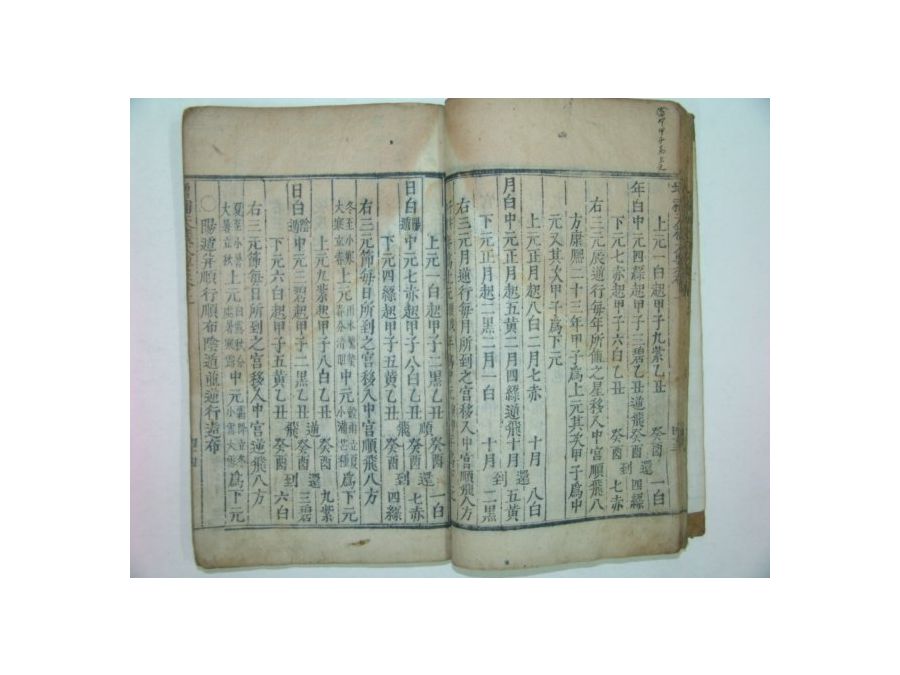 上元一白起甲子九紫乙丑 癸酉 一白
年白中元四綠起甲子三碧乙丑逆飛癸酉還到四綠
下元七赤起甲子六白乙丑 癸酉 七赤
右三元辰逆行每年所值之星移入中宮順飛八
方康熙二十三年甲子爲上元其次甲子爲中
元又其次甲子爲下元
上元正月起八白二月七赤 十月 八白
月白中元正月起五黃二月四綠逆飛十月還到五黃
下元正月起二黑二月一白 十月 二黑
右三元月逆行每月所到之宮移入中宮順飛八方
上元一白起甲子二黑乙丑 癸酉 一白
日白陽遁中元七赤起甲子八白乙丑順飛癸酉還到七赤
下元四綠起甲子五黃乙丑 癸酉 四綠
右三元節每日所到之宮移入中宮順飛八方
冬至小寒大寒立春上元雨水驚蟄春分清明中元穀雨立夏小滿芒種爲下元
上元九紫起甲子八白乙丑 癸酉 九紫
日白陰遁中元三碧起甲子二黑乙丑逆飛癸酉還到三碧
下元六白起甲子五黃乙丑 癸酉 六白
右三元節每日所到之宮移入中宮逆飛八方
夏至小暑大暑立秋上元處暑白露秋分寒露中元霜降立冬小雪大雪爲下元
○陽遁并順行順布陰遁並逆行逆布